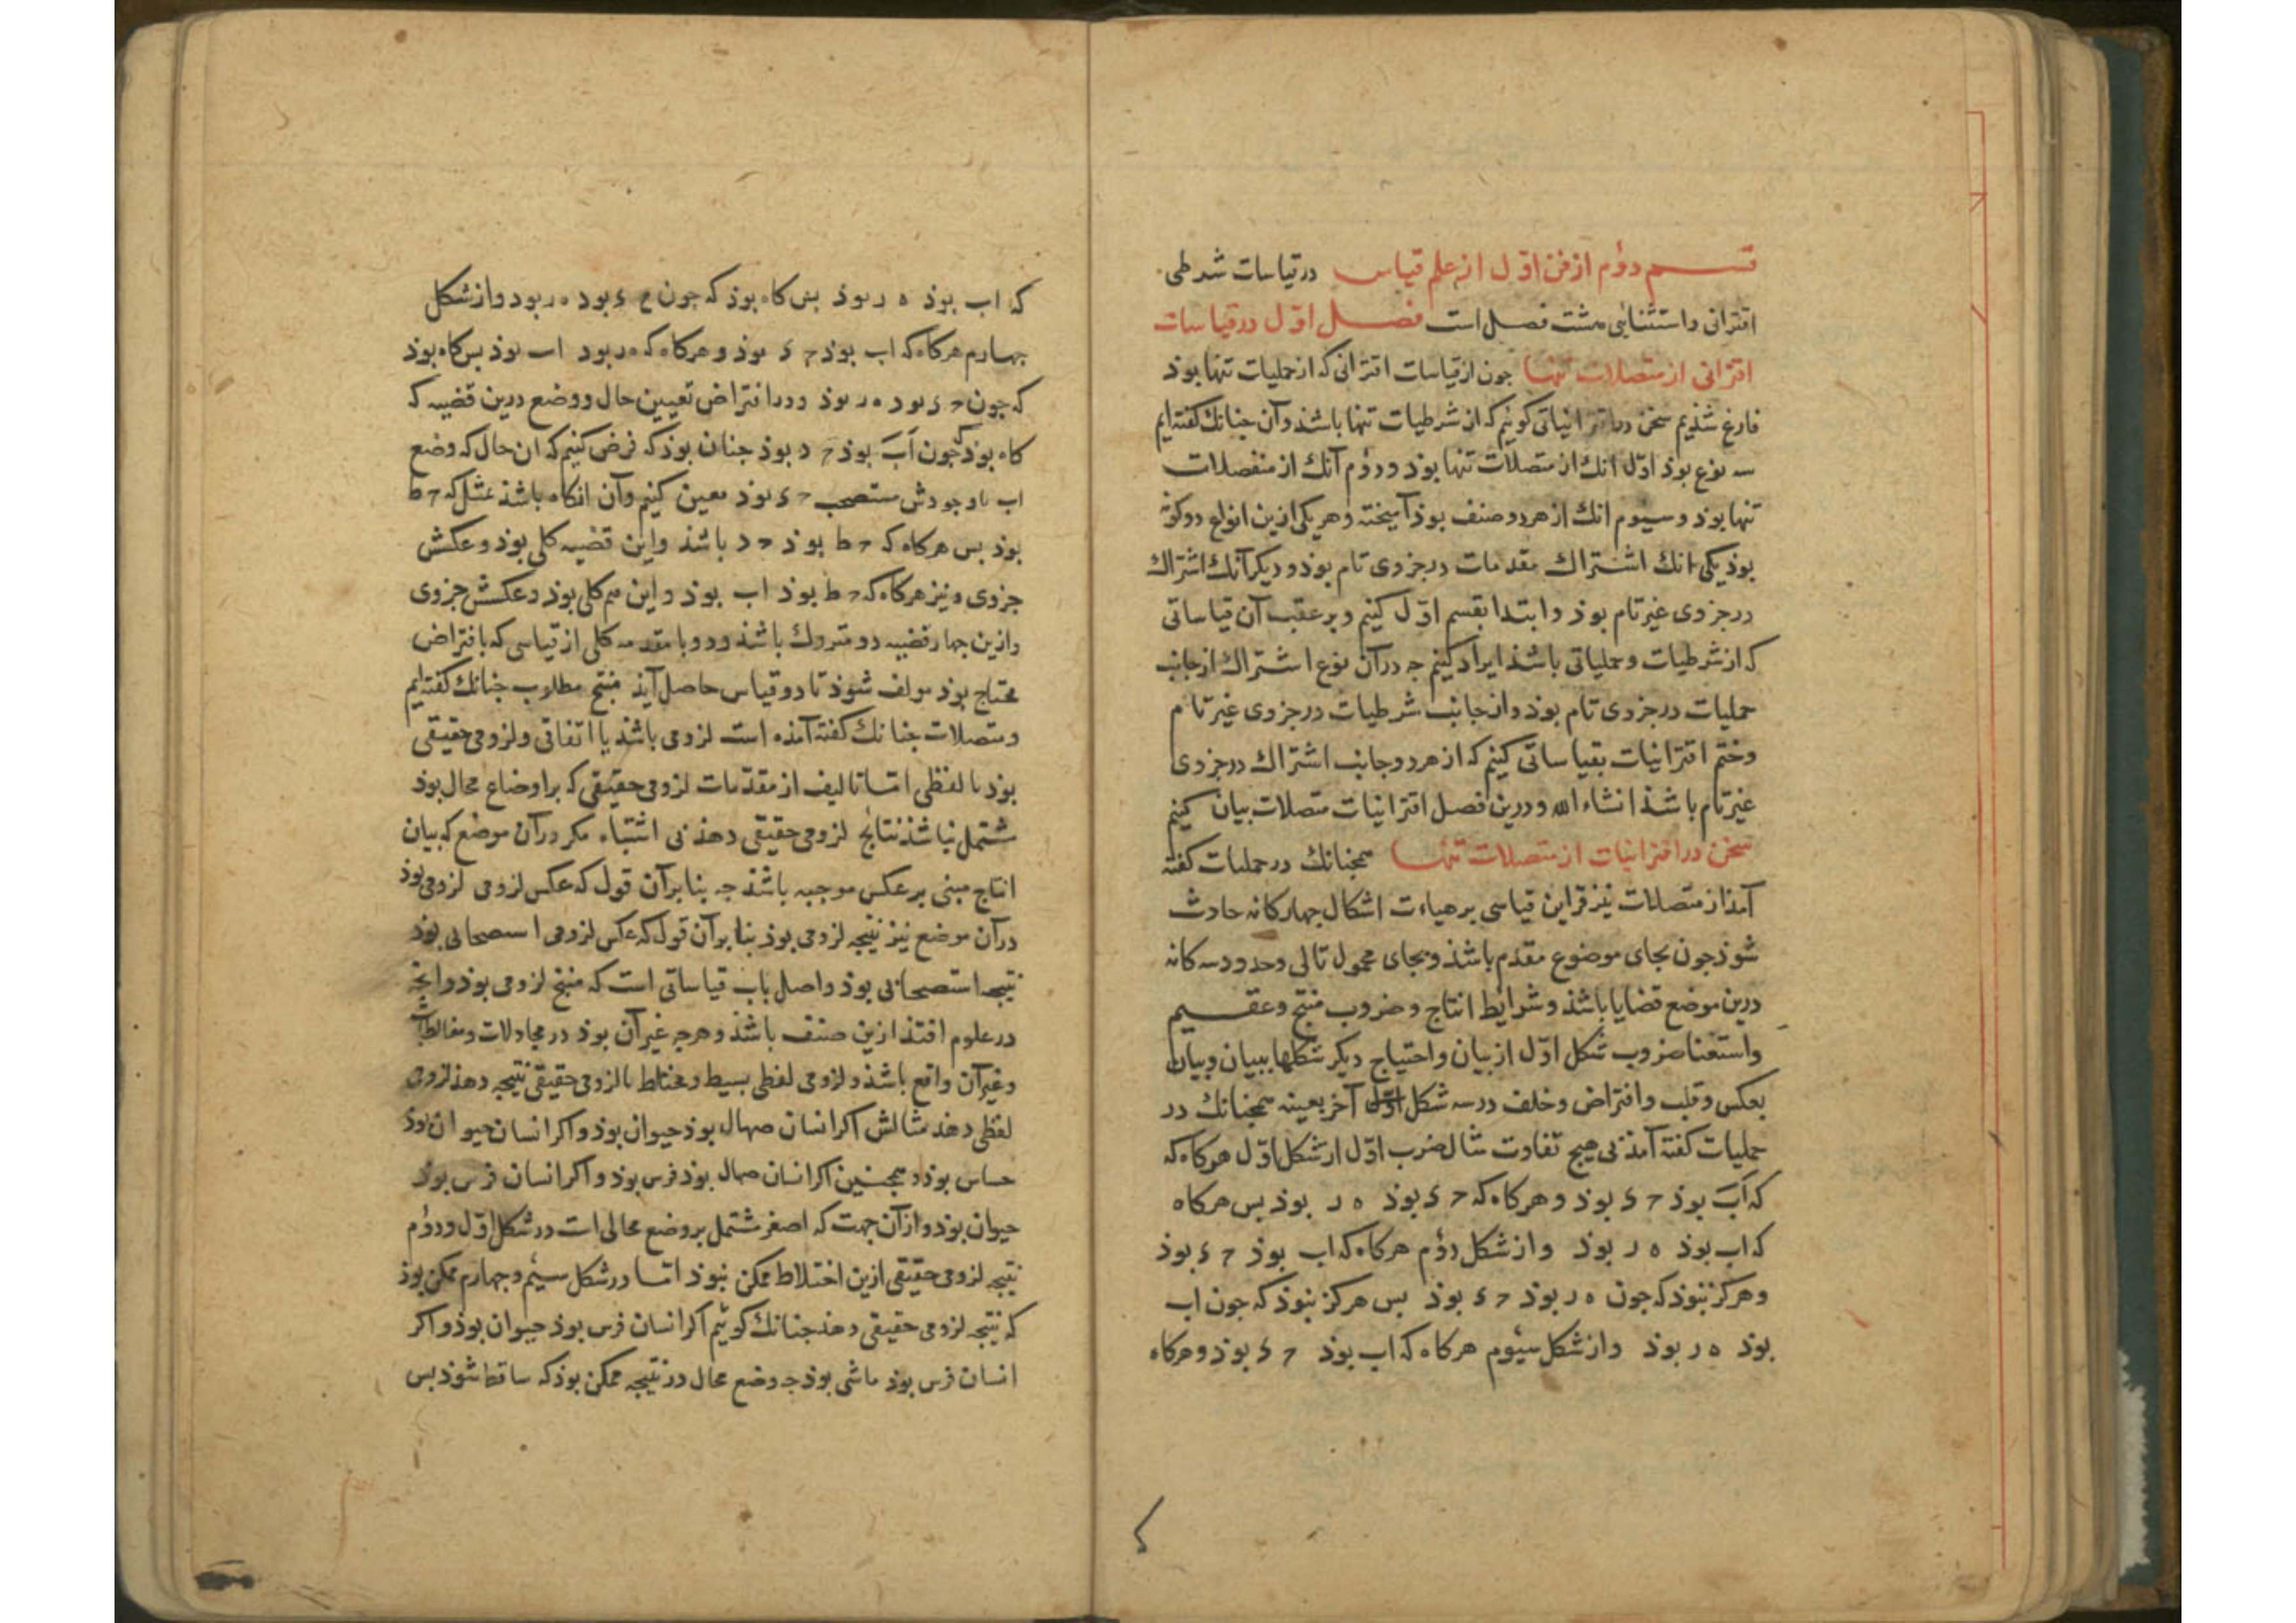 قسم دوم از فن اوّل از علم قیاس در قیاسات شرطی
اقترانی و استثنایی هشت فصل است فصل اوّل در قیاسات
اقترانی از متصلات تنها جون از قیاسات اقترانی که از حملیات تنها بوذ
فارغ شذیم سخن در اقترانیاتی کوئیم که از شرطیات تنها باشذ و آن جنانك کفته‌ایم
سه نوع بوذ اوّل انك از متصلات تنها بوذ و دوم آنك از منفصلات
تنها بوذ و سیوم انك از هر دو صنف بوذ آمیخته و هر یکی ازین انواع دو کونه
بوذ یکی انك اشتراك مقدمات در جزوی تام بوذ و دیکر آنك اشتراك
در جزوی غیر تام بوذ و ابتدا بقسم اوّل کنیم و بر عقب آن قیاساتی
که از شرطیات و حملیاتی باشذ ایراد کنیم جه در آن نوع اشتراك از جانب
حملیات در جزوی تام بوذ و از جانب شرطیات در جزوی غیر تام
و ختم اقترانیات بقیاساتی کنیم که از هر دو جانب اشتراك در جزوی
غیر تام باشذ انشاء الله و درین فصل اقترانیات متصلات بیان کنیم
سخن در اقترانیات از متصلات تنها همجنانك در حملیات کفته
آمذ از متصلات نیز قراین قیاسی بر هیاءت اشکال جهارکانه حادث
شوذ جون بجای موضوع مقدم باشذ و بجای محمول تالی و حدود سه کانه
درین موضع قضایا باشذ و شرایط انتاج و ضروب منتج و عقیم
و استغنا ضروب شکل اوّل از بیان و احتیاج دیکر شکلها ببیان و بیان
بعکس و قلب و افتراض و خلف در سه شکل اوّل آخر بعینه همجنانك در
حملیات کفته آمذ بی هیج تفاوت مثال ضرب اوّل از شکل اوّل هرکاه که
که اَبَ بوذ ح د بوذ و هرکاه که ح د بوذ ه ر بوذ بس هرکاه
که اب بوذ ه ر بوذ و از شکل دوم هرکاه که اب بوذ ح د بوذ
و هرکز نبوذ که جون ه ر بوذ ح د بوذ بس هرکز نبوذ که جون اب
بوذ ه ر بوذ و از شکل سیوم هرکاه که اب بوذ ح د بوذ و هرکاه
که اب بوذ ه ر بوذ بس کاه بوذ که جون ح د بوذ ه ر بود و از شکل
جهارم هرکاه که اب بوذ ح د بوذ و هرکاه که ه ر بود اب بوذ بس کاه بوذ
که جون ح د بود ه ر بوذ و در افتراض تعیین حال و وضع درین قضیه که
کاه بوذ که جون اَبَ بوذ ح د بوذ جنان بوذ که فرض کنیم که ان حال که وضع
اب با وجودش مستصحب ح د بوذ معین کنیم و آن انکاه باشذ مثلا که ح ط
بوذ بس هرکاه که ح ط بوذ ح د باشذ و این قضیه کلی بوذ و عکسش
جزوی و نیز هرکاه که ح ط بوذ اب بوذ و این هم کلی بوذ و عکسش جزوی
و ازین جهار قضیه دو متروك باشذ و دو با مقدمه کلی از قیاسی که بافتراض
محتاج بوذ مولف شوذ تا دو قیاس حاصل آیذ منتج مطلوب جنانك کفته‌ایم
و متصلات جنانك کفته آمذه است لزومی باشذ یا اتفاقی و لزومی حقیقی
بوذ یا لفظی امّا تالیف از مقدّمات لزومی حقیقی که بر اوضاع محال بوذ
مشتمل نباشذ نتایج لزومی حقیقی دهذ بی اشتباه مکر در آن موضع که بیان
انتاج مبنی بر عکس موجبه باشذ جه بنا بر آن قول که عکس لزومی لزومی بوذ
در آن موضع نیز نتیجه لزومی بوذ بنا بر آن قول که عکس لزومی استصحابی بوذ
نتیجه استصحابی بوذ و اصل باب قیاساتی است که منتج لزومی بوذ و انچه
در علوم افتذ ازین صنف باشذ و هرجه غیر آن بوذ در مجادلات و مغالطات
و غیر آن واقع باشذ و لزومی لفظی بسیط و مختلط با لزومی حقیقی نتیجه دهذ لزومی
لفظی دهذ مثالش اکر انسان صهال بوذ حیوان بوذ و اکر انسان حیوان بوذ
حساس بوذ و همجنین اکر انسان صهال بوذ فرس بوذ و اکر انسان فرس بوذ
حیوان بوذ و از آن جهت که اصغر مشتمل بر وضع محالی است در شکل اوّل و دوم
نتیجه لزومی حقیقی ازین اختلاط ممکن نبوذ امّا در شکل سیم و جهارم ممکن بوذ
که نتیجه لزومی حقیقی دهذ جنانك کوئیم اکر انسان فرس بوذ حیوان بوذ و اکر
انسان فرس بوذ ماشی بوذ جه وضع محال در نتیجه ممکن بوذ که ساقط شوذ بس